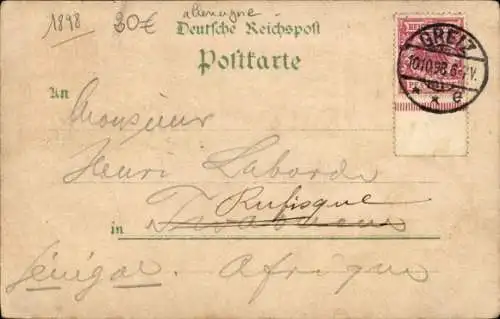 1898 30€ allemagne
Deutsche Reichspost
Postkarte
GREIZ
10.10.98.6-7V.
* * e
An
Monsieur
Henri Laborde
Rufisque
in
Sénégal. Afrique